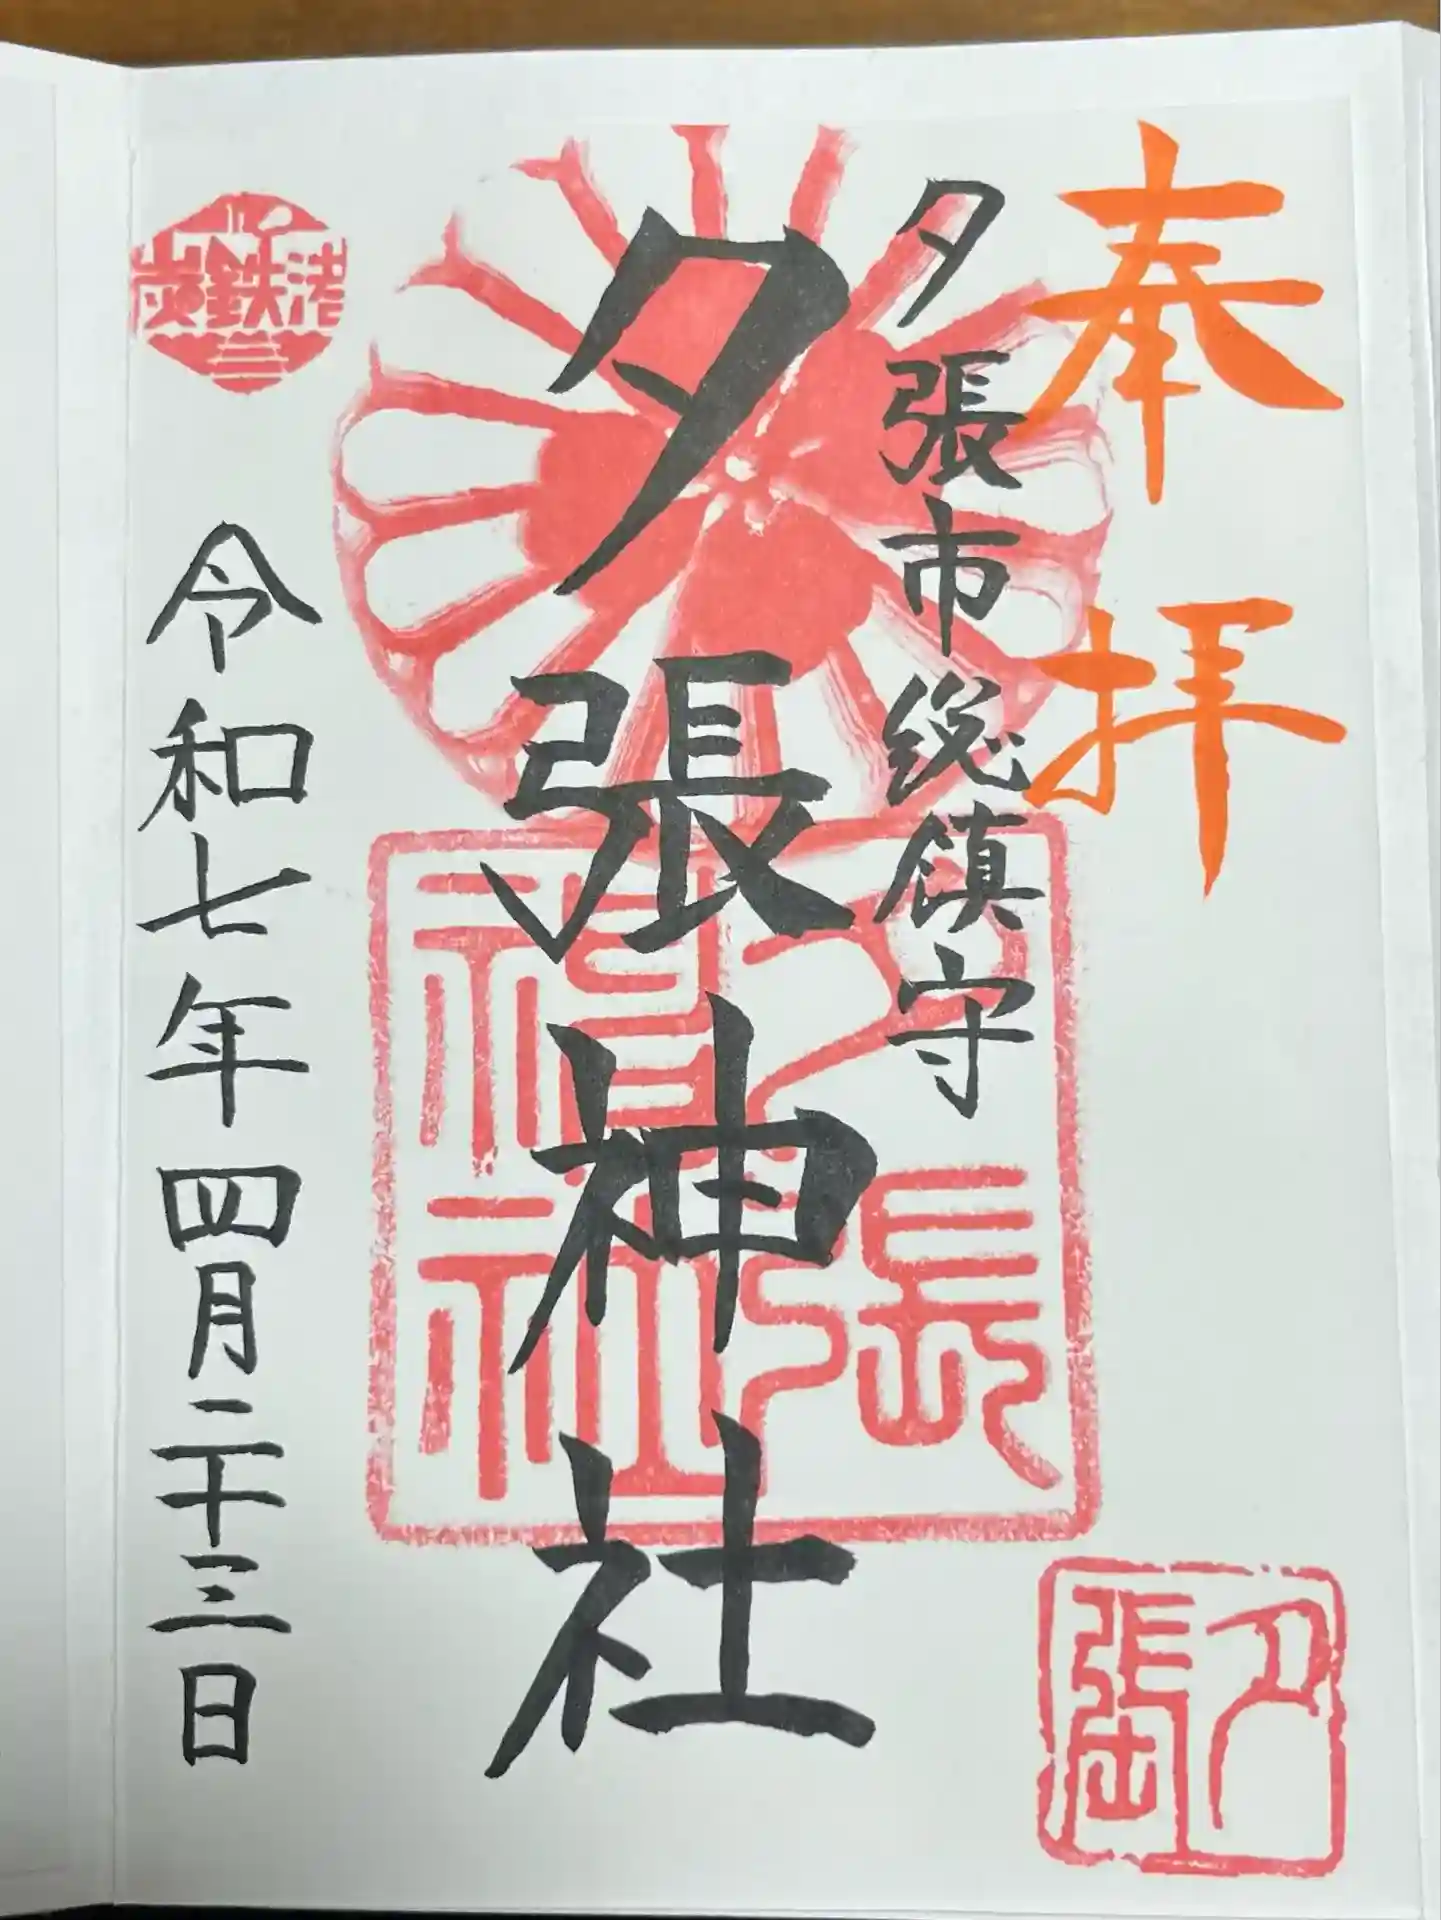 奉拝
夕張市総鎮守
夕張神社
令和七年四月二十三日
炭鉄港
夕張神社